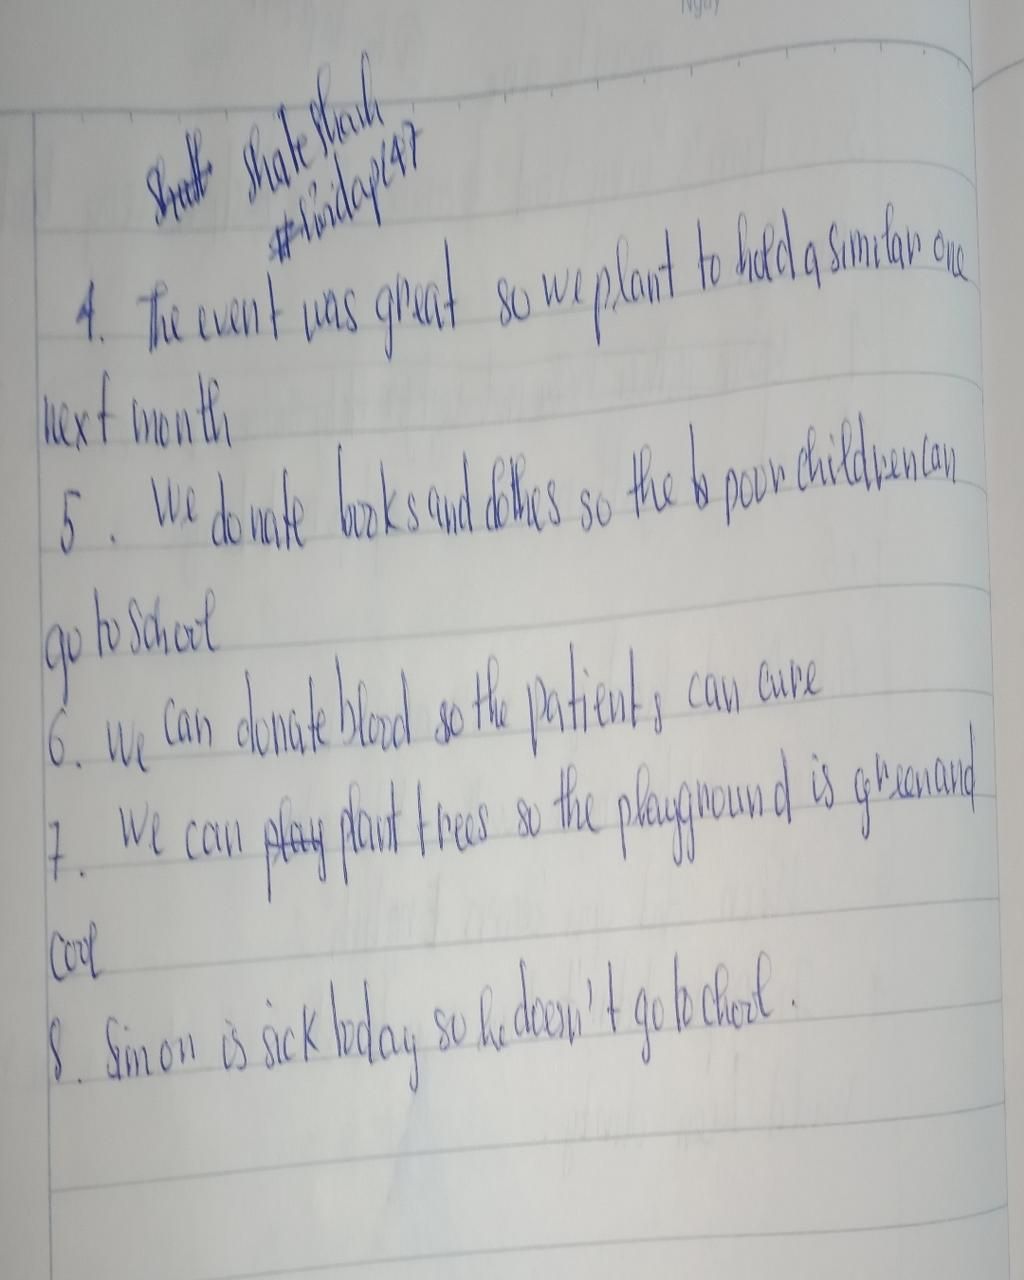 Ngày
4. The event was great so we plant to hold a similar one
next month
5. We donate books and clothes so the poor children can
go to School
6. We can donate blood so the patients can cure
7. We can play plant trees so the playground is green and
cool
8. Simon is sick today so he doesn't go to chool.